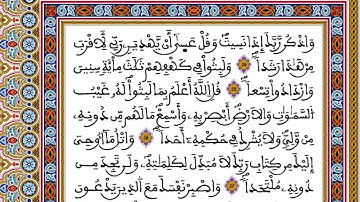 وَاذْكُر رَّبَّكَ إِذَا نَسِيتَ وَقُلْ عَسَىٰ أَن يَهْدِيَنِ رَبِّي لِأَقْرَبَ
مِنْ هَٰذَا رَشَدًا وَلَبِثُوا فِي كَهْفِهِمْ ثَلَٰثَ مِا۟ئَةٍ سِنِينَ
وَازْدَادُوا تِسْعًا قُلِ اللَّهُ أَعْلَمُ بِمَا لَبِثُوا لَهُ غَيْبُ
السَّمَٰوَٰتِ وَالْأَرْضِ أَبْصِرْ بِهِ وَأَسْمِعْ مَا لَهُم مِّن دُونِهِ
مِن وَلِيٍّ وَلَا يُشْرِكُ فِي حُكْمِهِ أَحَدًا وَاتْلُ مَا أُوحِيَ
إِلَيْكَ مِن كِتَابِ رَبِّكَ لَا مُبَدِّلَ لِكَلِمَٰتِهِ وَلَن تَجِدَ مِن
دُونِهِ مُلْتَحَدًا وَاصْبِرْ نَفْسَكَ مَعَ الَّذِينَ يَدْعُونَ